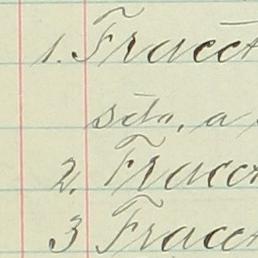 1. Fracct
sito, a
2. Fracc
3 Fracc